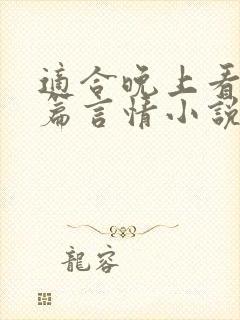 適合晚上看
篇言情小說
龍容